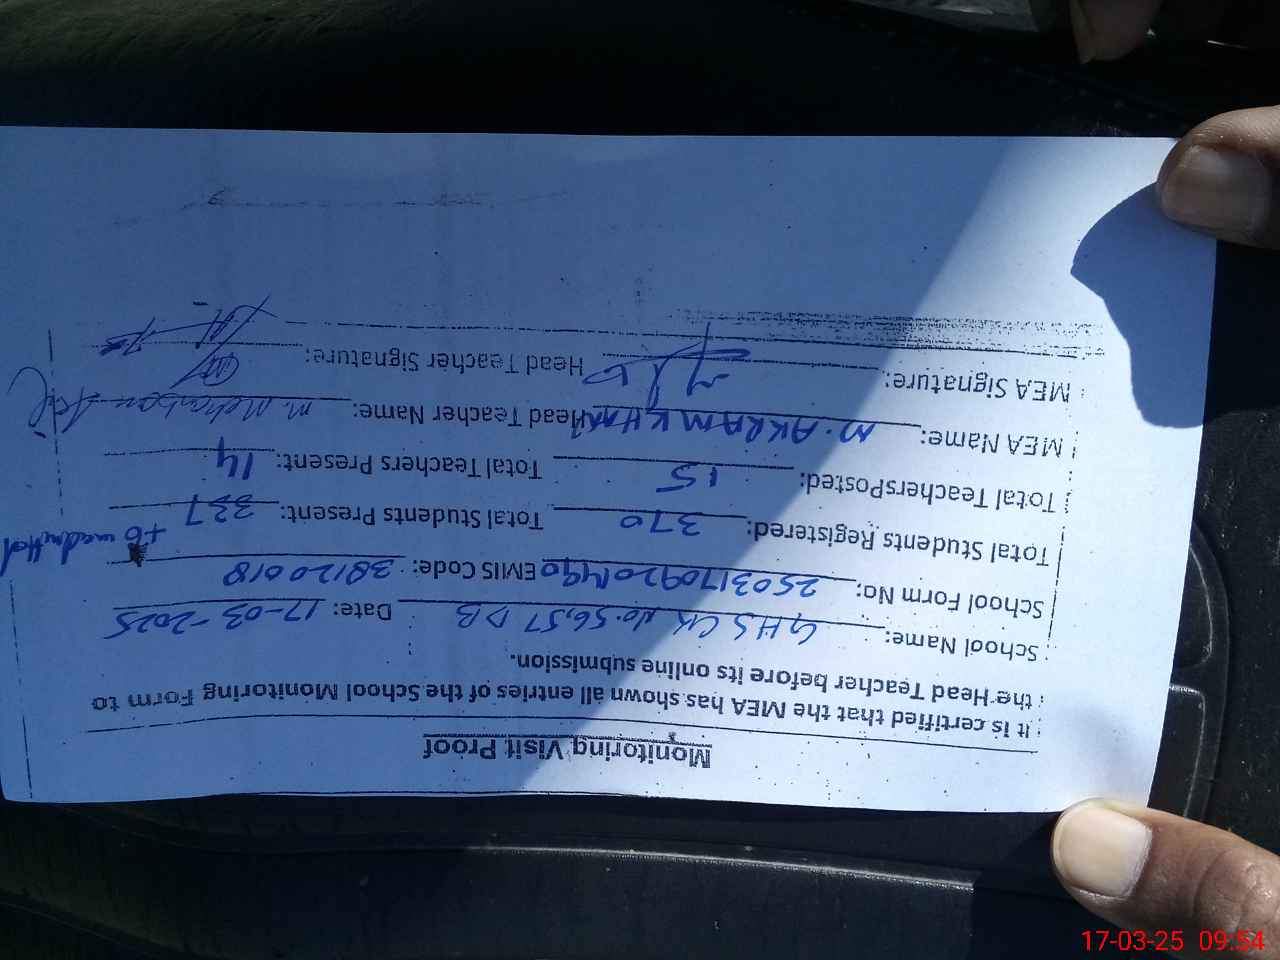 Monitoring Visit Proof
It is certified that the MEA has shown all entries of the School Monitoring Form to
the Head Teacher before its online submission.
School Name: GHS CK No. 56,57 DB Date: 17-03-2025
School Form No: EMIS Code: 38120018
Total Students Registered: 370 Total Students Present: 337
Total TeachersPosted: 15 Total Teachers Present: 14
MEA Name: M. AKRAM KHAN Head Teacher Name: M.
MEA Signature: Head Teacher Signature:
17-03-25 09:54